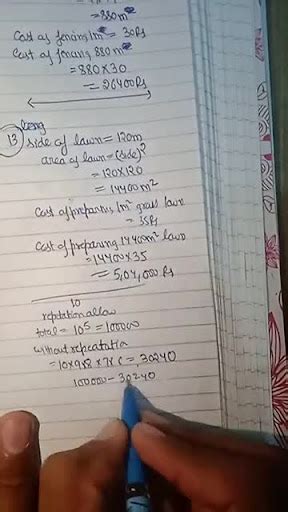 =880m²
Cost of fencing 1m = 30Rs
Cost of fencing 880m
=880×30
=26400Rs
13 leng
side of lawn=120m
area of lawn=(side)²
=120×120
=14400m²
Cost of preparing 1m² grass lawn
=35Rs
Cost of preparing 14400m² lawn
=14400×35
=5,04,000 Rs
10
repitation allow
total = 10⁵ = 100000
without repeatation
=10×9×8×7×6=30240
100000-30240